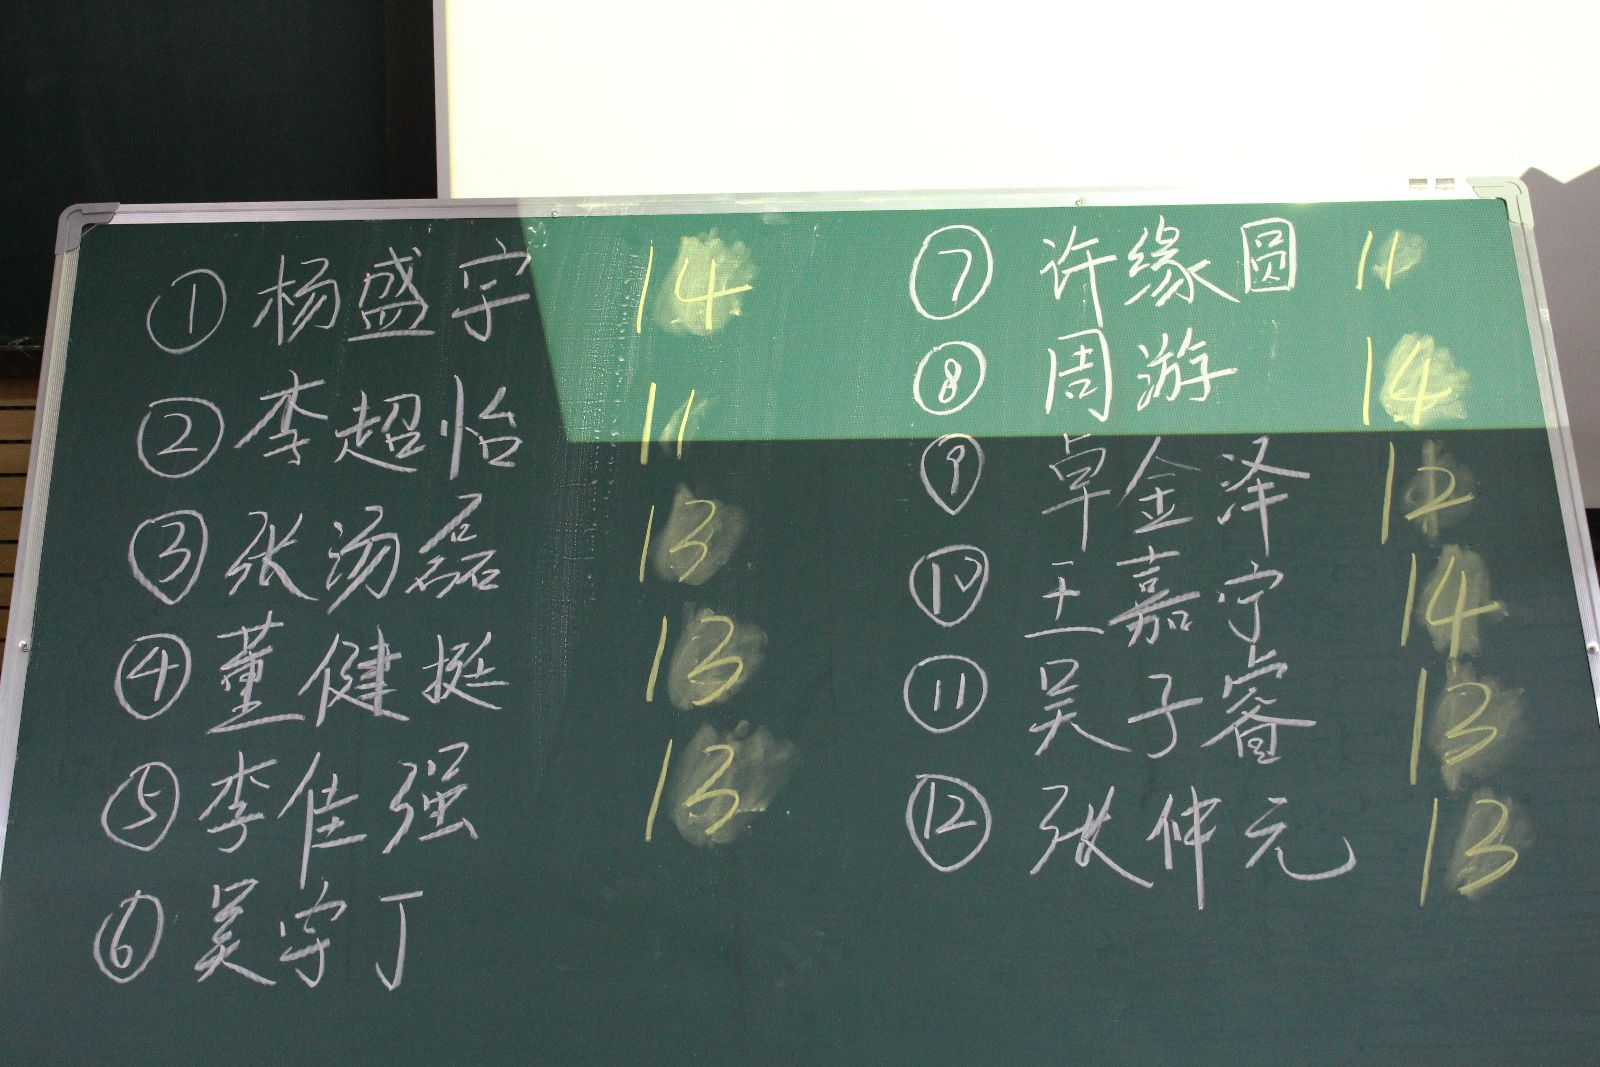 ① 杨盛宇 14
② 李超怡 11
③ 张汤磊 13
④ 董健挺 13
⑤ 李佳强 13
⑥ 吴宇丁
⑦ 许缘圆 11
⑧ 周游 14
⑨ 卓金泽 12
⑩ 王嘉宁 14
⑪ 吴子睿 13
⑫ 张仲元 13